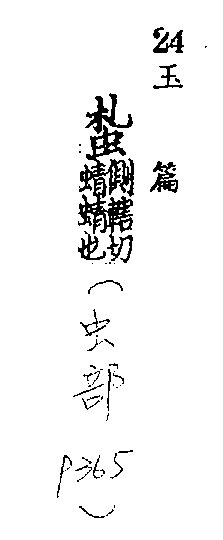 24 玉篇
蚻側轄切蜻蜻也(虫部 P365)